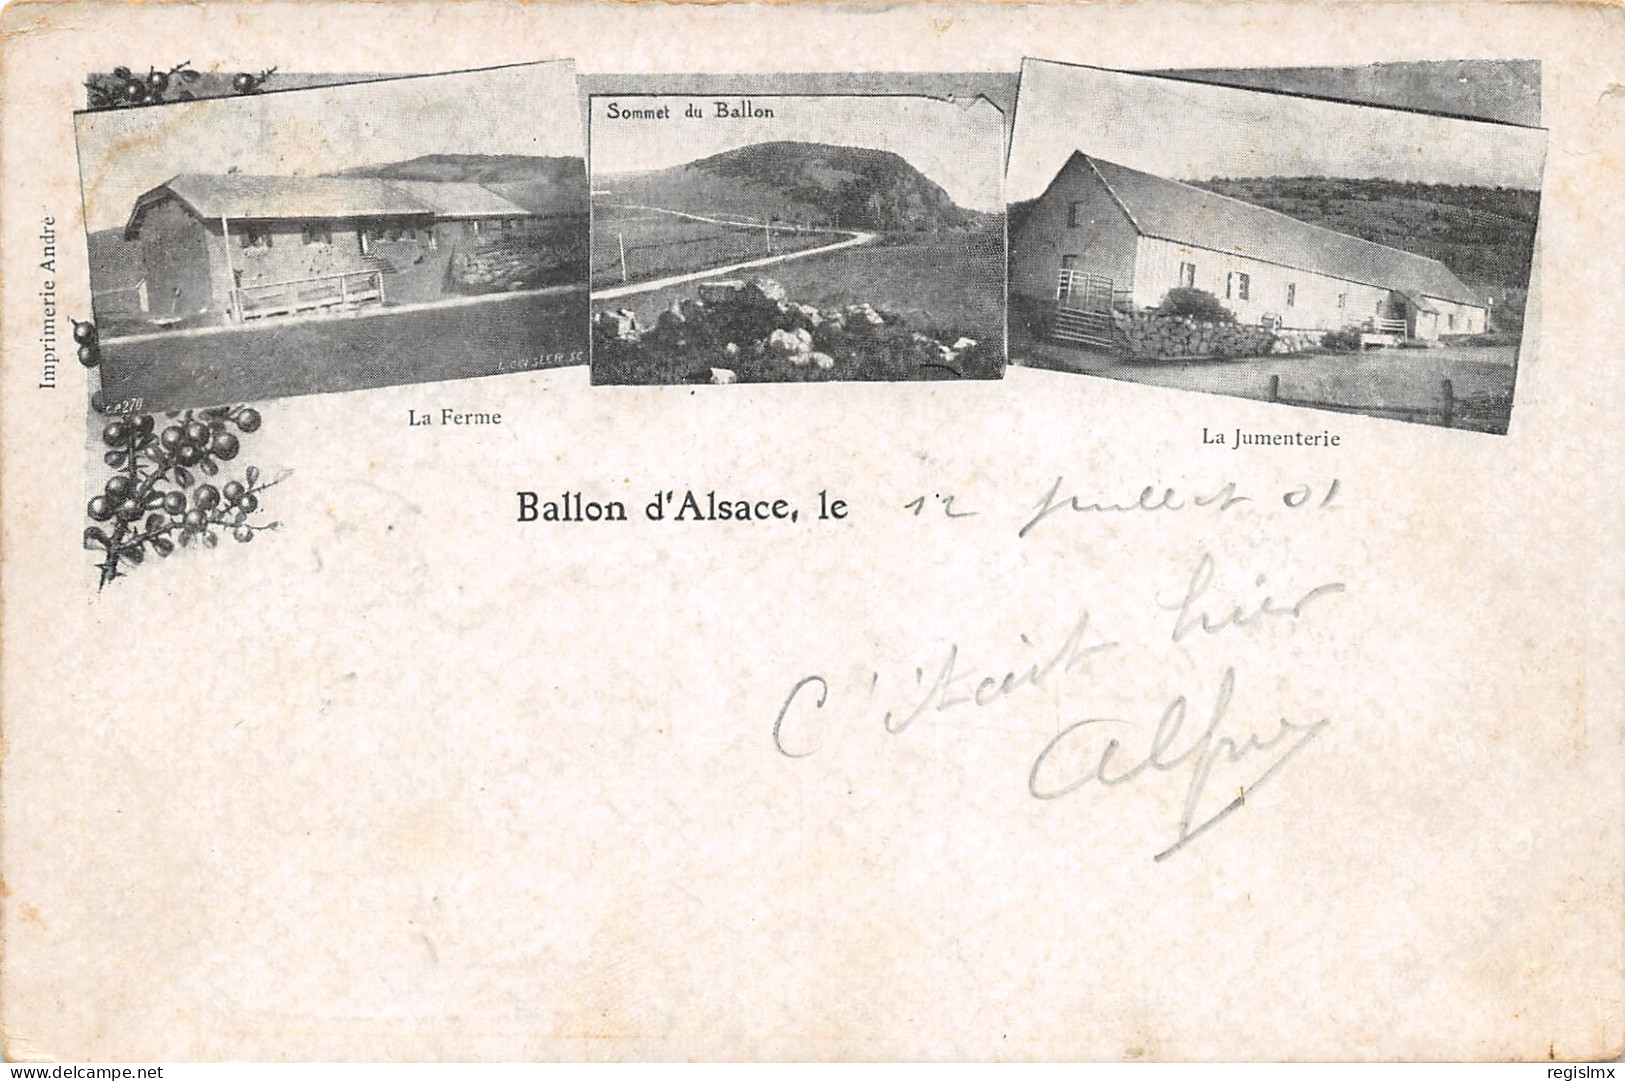 Sommet du Ballon
Imprimerie André
270
La Ferme
La Jumenterie
Ballon d'Alsace, le 12 Juillet 01
C'était hier
Alfred
delcampe.net
regislmx